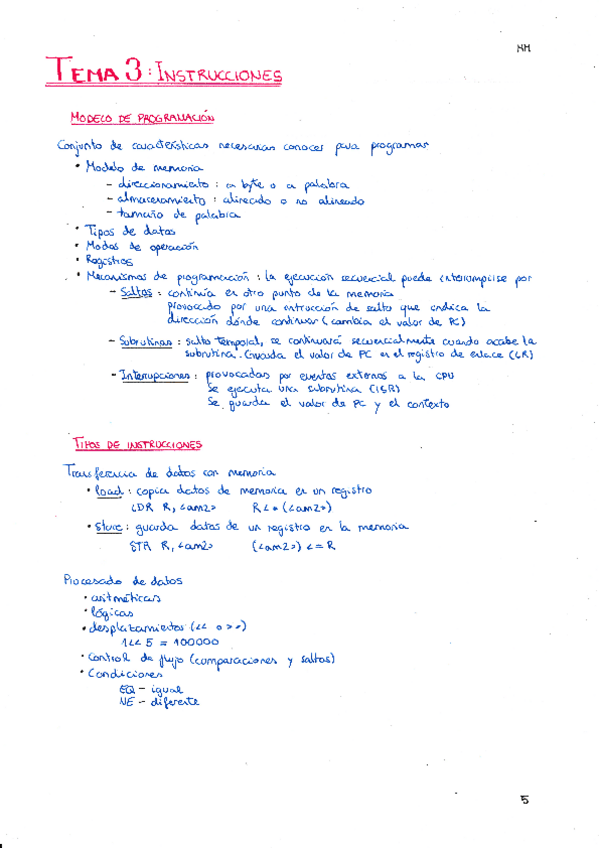 NM
TEMA 3: INSTRUCCIONES
MODELO DE PROGRAMACIÓN
Conjunto de características necesarias conocer para programar
• Modelo de memoria
- direccionamiento: a byte o a palabra
- almacenamiento: alineado o no alineado
- tamaño de palabra
• Tipos de datos
• Modos de operación
• Registros
• Mecanismos de programación: la ejecución secuencial puede interrumpirse por
- Saltos: continúa en otro punto de la memoria
provocado por una intrucción de salto que indica la
dirección dónde continuar (cambia el valor de PC)
- Subrutinas: salto temporal, se continuará secuencialmente cuando acabe la
subrutina. Guarda el valor de PC en el registro de enlace (LR)
- Interrupciones: provocadas por eventos externos a la CPU
Se ejecuta una subrutina (ISR)
Se guarda el valor de PC y el contexto
TIPOS DE INSTRUCCIONES
Transferencia de datos con memoria
• load: copia datos de memoria en un registro
LDR R, <am2> R <= (<am2>)
• store: guarda datos de un registro en la memoria
STR R, <am2> (<am2>) <= R
Procesado de datos
• aritméticas
• lógicas
• desplazamientos (<< o >>)
1<< 5 = 100000
• control de flujo (comparaciones y saltos)
• Condiciones
EQ - igual
NE - diferente
5